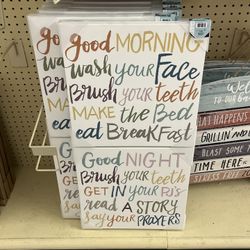 good MORNING
wash your Face
Brush your teeth
MAKE the Bed
eat BreakFast
Good NIGHT
Brush your teeth
GET IN your PJ's
read A STORY
say your PRAYERS
WHAT HAPPENS
GRILLIN AND
BLAST SOME
TIME HERE
STRESS FREE